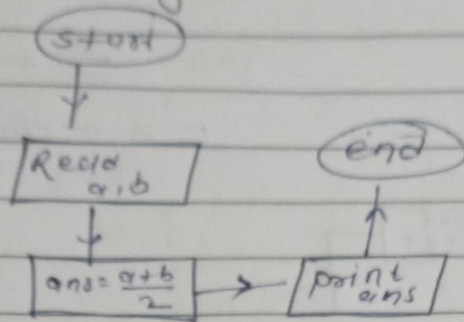 start
Read
a, b
ans = a+b/2
print
ans
end